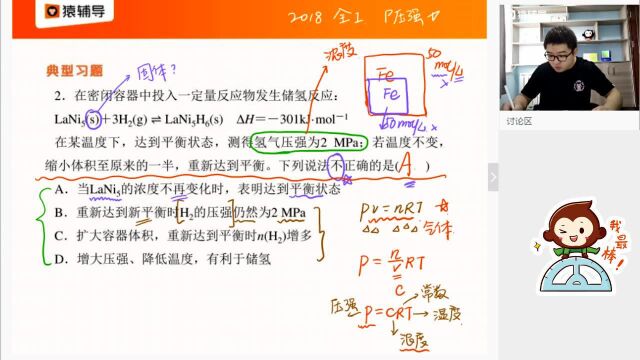 猿辅导
2018 全工 P压强
典型习题
固体?
浓度
50 mol/L
Fe
Fe
50mol/L
2. 在密闭容器中投入一定量反应物发生储氢反应:
LaNi₅(s)+3H₂(g)⇌LaNi₅H₆(s) ΔH=-301kJ·mol⁻¹
在某温度下,达到平衡状态,测得氢气压强为2 MPa;若温度不变,
缩小体积至原来的一半,重新达到平衡。下列说法不正确的是( A )
A. 当LaNi₅的浓度不再变化时,表明达到平衡状态
B. 重新达到新平衡时H₂的压强仍然为2 MPa
C. 扩大容器体积,重新达到平衡时n(H₂)增多
D. 增大压强、降低温度,有利于储氢
PV=nRT
气体
P=n/V RT
C
压强 P=CRT 常数
温度
浓度
讨论区
我最棒!